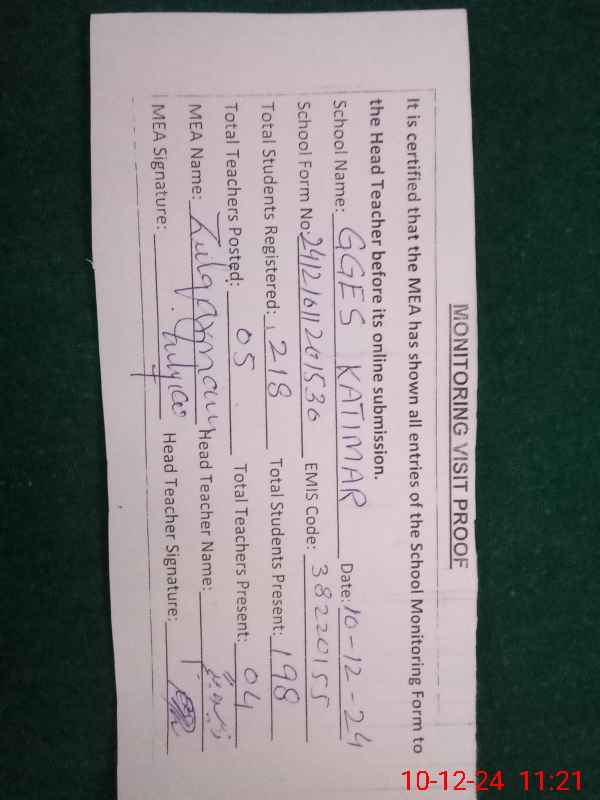 MONITORING VISIT PROOF
It is certified that the MEA has shown all entries of the School Monitoring Form to
the Head Teacher before its online submission.
School Name: GGES KATIMAR Date: 10-12-24
School Form No: EMIS Code: 38220155
Total Students Registered: 218 Total Students Present: 198
Total Teachers Posted: 05 Total Teachers Present: 04
MEA Name: Head Teacher Name:
MEA Signature: Head Teacher Signature:
10-12-24 11:21